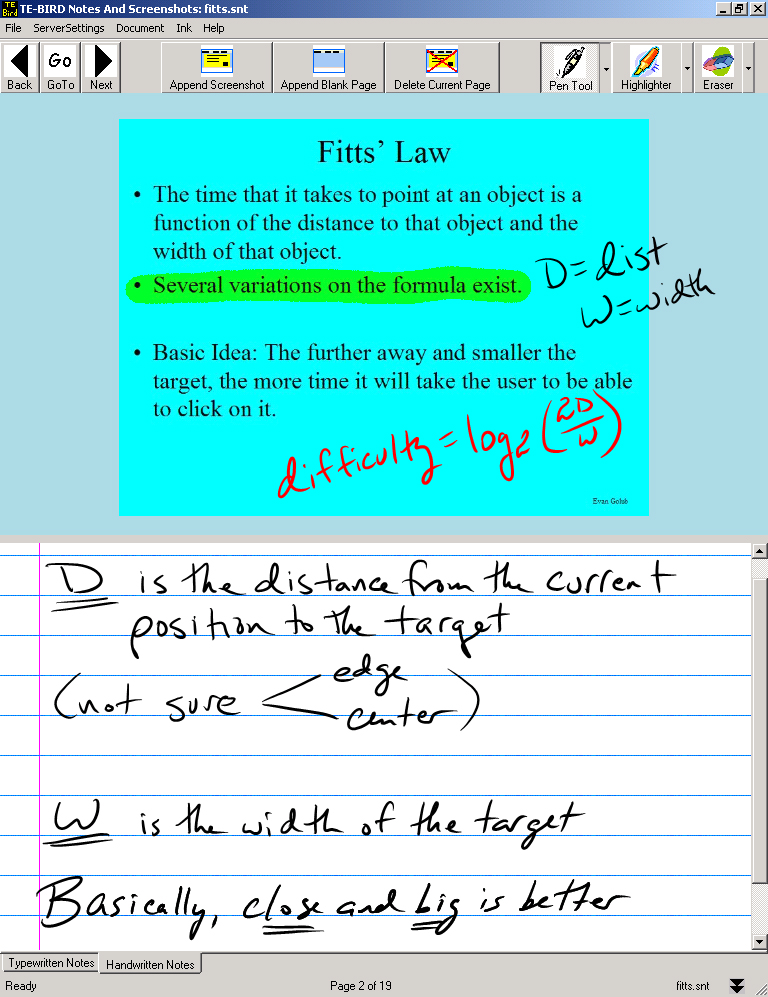 TE Bird TE-BIRD Notes And Screenshots: fitts.snt
File ServerSettings Document Ink Help
Go
Back GoTo Next Append Screenshot Append Blank Page Delete Current Page Pen Tool Highlighter Eraser
Fitts' Law
• The time that it takes to point at an object is a
function of the distance to that object and the
width of that object.
• Several variations on the formula exist.
D = dist
W = width
• Basic Idea: The further away and smaller the
target, the more time it will take the user to be able
to click on it.
difficulty = log2 (2D/W)
Evan Golub
D is the distance from the current
position to the target
(not sure < edge
center)
W is the width of the target
Basically, close and big is better
Typewritten Notes Handwritten Notes
Ready Page 2 of 19 fitts.snt